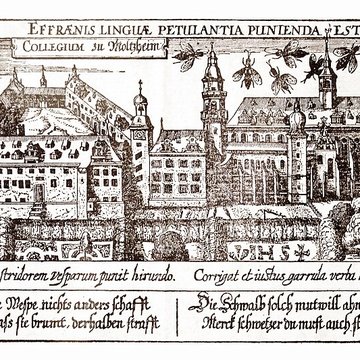 EFFRÆNIS LINGUÆ PETULANTIA PUNIENDA EST
COLLEGIUM zu Moltzheim
stridorem vesparum punit hirundo.
Corrigat et iustus garrula verba
Wespe nichts anders schafft
sie brumt, derhalben strafft
Die Schwalb solch mutwill
Merck schwetzer du must auch